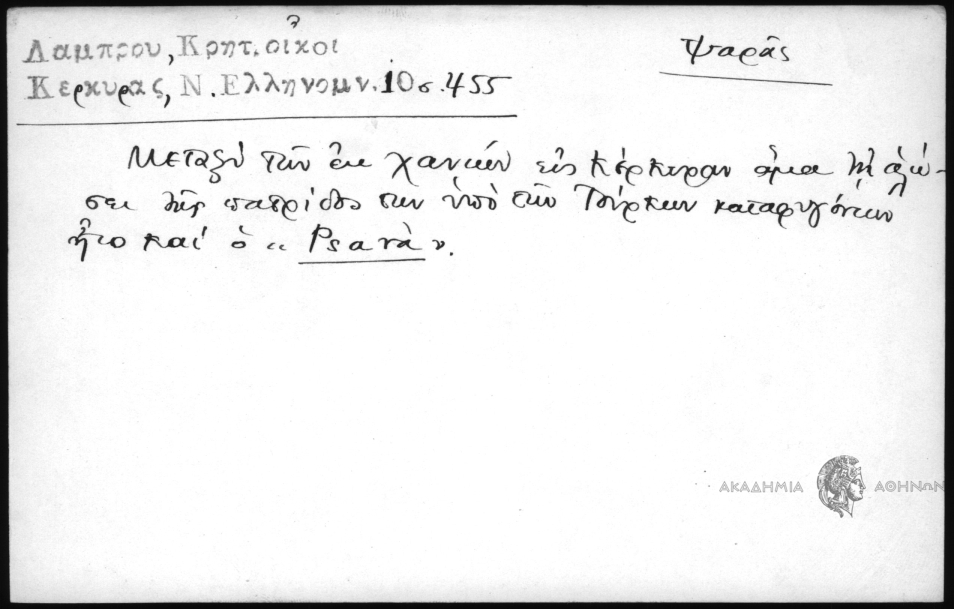 Λαμπρου, Κρητ. οἶκοι
Κερκυρας, Ν. Ελληνομν. 10 σ. 455
Ψαρᾶς
Μεταξύ τῶν ἐκ Χανίων εἰς Κέρκυραν ἅμα τῇ ἁλώ-
σει τῆς πατρίδος των ὑπό τῶν Τούρκων καταφυγόντων
ἦτο καί ὁ "Psarà".
ΑΚΑΔΗΜΙΑ ΑΘΗΝΩΝ